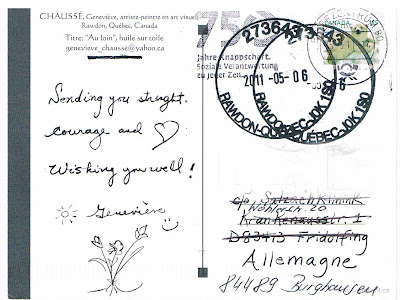 CHAUSSÉ, Geneviève, artiste-peintre en art visuel
Rawdon, Québec, Canada
Titre: "Au loin", huile sur toile
genevieve_chausse@yahoo.ca
Sending you strenght,
courage and ♡
Wishing you well!
Geneviève
750
Jahre Knappschaft.
Soziale Verantwortung
zu jeder Zeit.
CANADA
2011-05-06
RAWDON-QUÉBEC-J0K 1S0
c/o Salzach Klinik
Krankenhausstr. 1
D83413 Fridolfing
Allemagne
84489 Burghausen